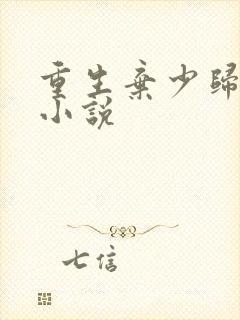 重生棄少歸
小說
七信